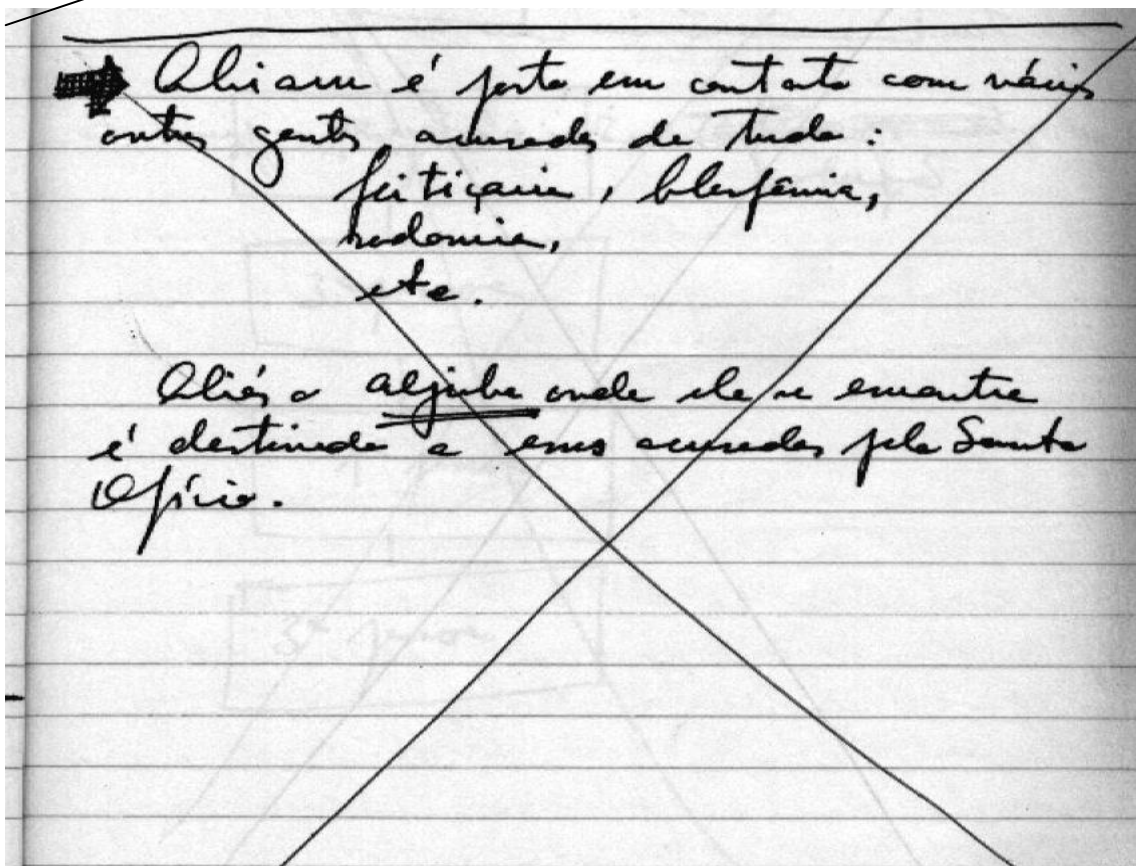 Abiam é posto em contato com vários
outros gentes acusados de tudo:
feitiçaria, blasfêmia,
sodomia,
etc.
Aliás o aljube onde ele se encontra
é destinado a esses acusados pelo Santo
Ofício.